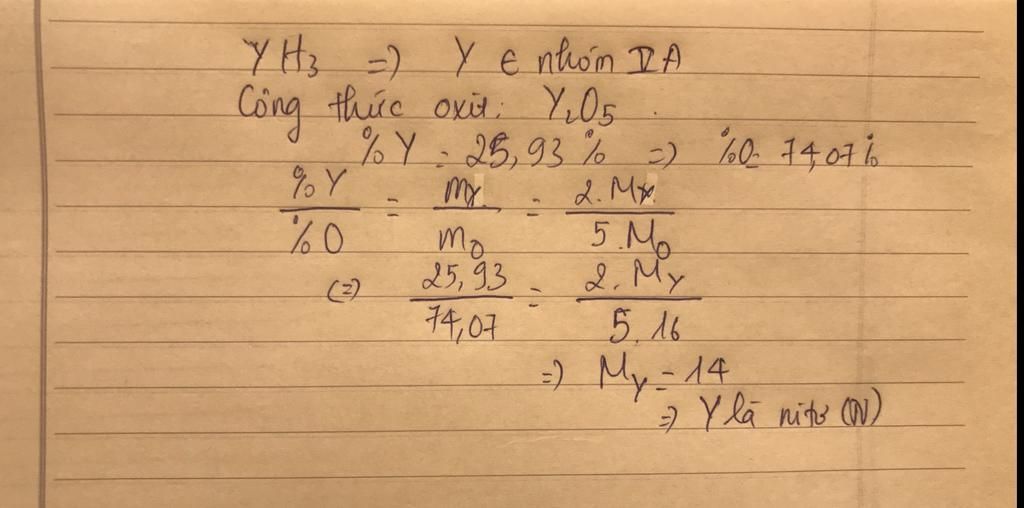 YH3 => Y ∈ nhóm VA
Công thức oxit: Y2O5.
%Y = 25,93% => %O = 74,07%
%Y/%O = mY/mO = 2.MY/5.MO
(=) 25,93/74,07 = 2.MY/5.16
=> MY = 14
=> Y là nitơ (N)